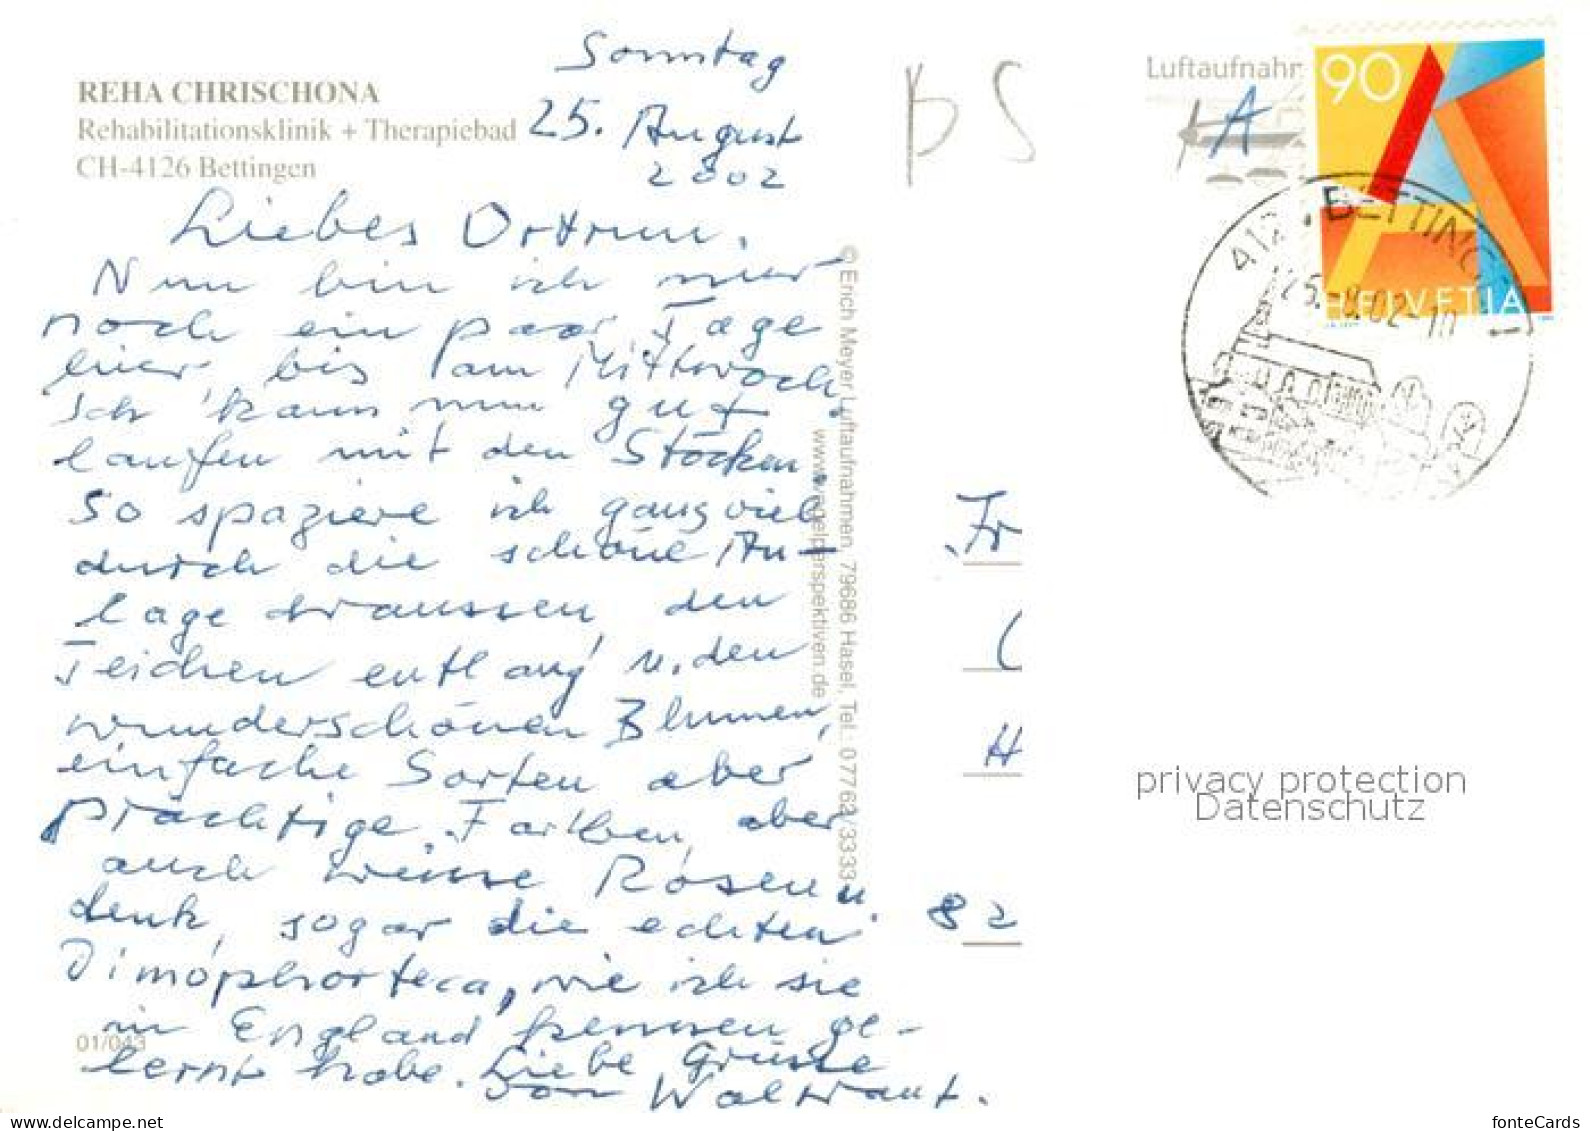 REHA CHRISCHONA
Rehabilitationsklinik + Therapiebad
CH-4126 Bettingen
Sonntag
25. August
2002
Liebes Ortrun.
Nun bin ich nur
noch ein paar Tage
hier, bis am Mittwoch.
Ich kann nun gut
laufen mit den Stöcken.
So spaziere ich ganz viel
durch die schöne An-
lage draussen, den
Teichen entlang u. den
wunderschönen Blumen,
einfache Sorten aber
prächtige Farben, aber
auch weisse Rosen u.
denk, sogar die echten
Dimophorteca, wie ich sie
in England kennen ge-
lernt habe. Liebe Grüsse
von Waltraut.
01/043
© Erich Meyer Luftaufnahmen, 79686 Hasel, Tel.: 07762/3333
www.vogelperspektiven.de
BS
Luftaufnahm
A
90
HELVETIA
BETTINGEN
25.-8.02-10
Fr
H
82
privacy protection
Datenschutz
fonteCards
www.delcampe.net